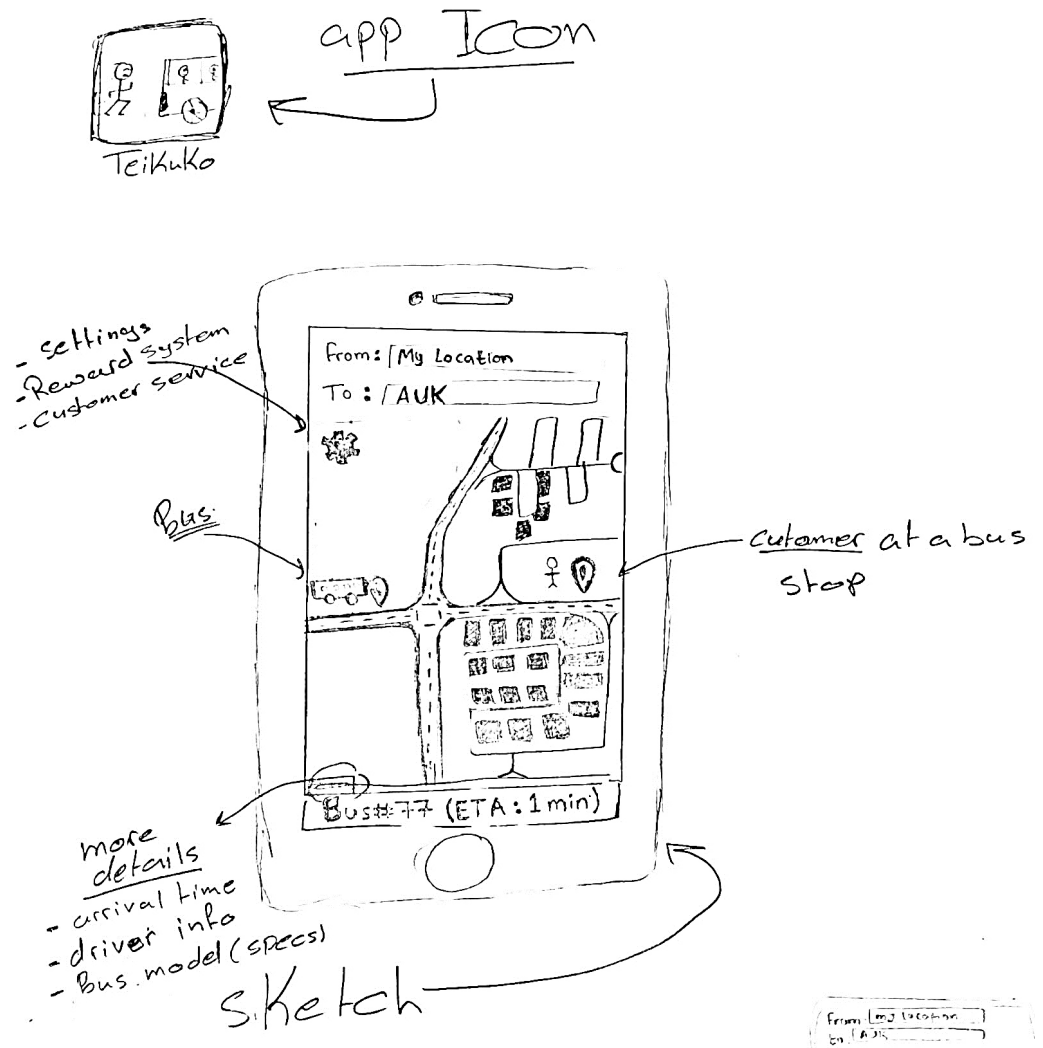 app Icon
TeiKuKo
- settings
- Reward system
- customer service
From: My Location
To: AUK
Bus
Cutomer at a bus
stop
Bus#77 (ETA: 1 min)
more
details
- arrival time
- driver info
- Bus model (specs)
sketch
From my location
to AUK